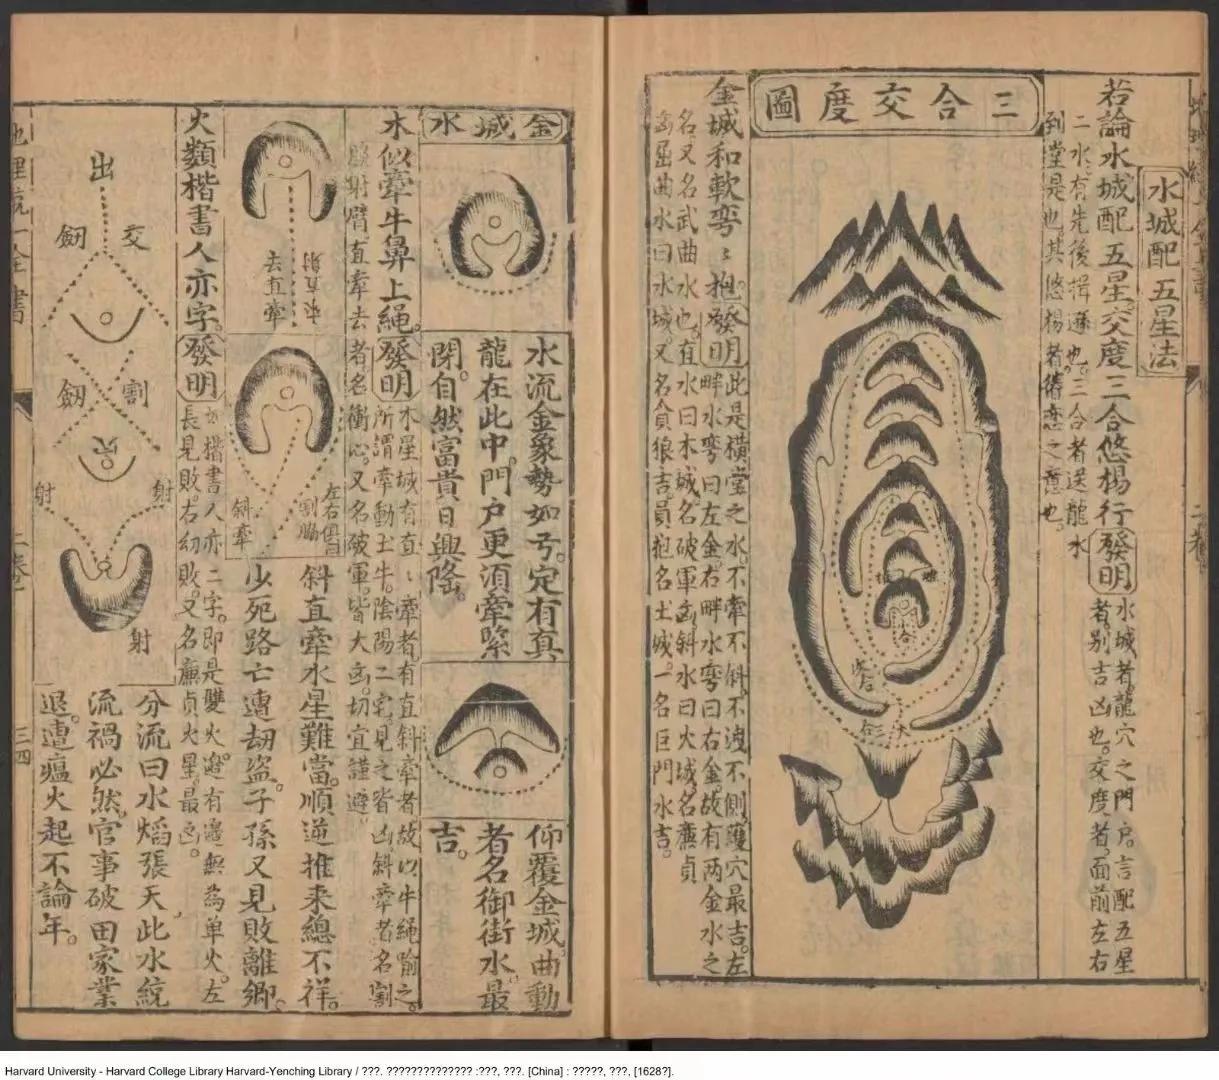 水城配五星法
若論水城配五星交度三合悠楊行發明
水城者龍穴之門戶言配五星
者别吉凶也交度者面前左右
二水有先後揖遜也三合者送龍水
到堂是也其悠楊者
戀之意也
三合交度圖
合
三合
金城和軟彎彎抱發明
此是橫堂之水不牽不斜不洩不側護穴最吉左
畔水彎曰左金右畔水彎曰右金故有两金水之
名又名武曲水也直水曰木城名破軍凶斜水曰火城名廉貞
凶屈曲水曰水城又名貪狼吉員抱名土城一名巨門水吉
金城水
水流金象勢如弓定有真
龍在此中門戶更湏牽緊
閉自然富貴日興隆
仰覆金城曲動
者名御街水最
吉
木似牽牛鼻上繩發明
木星城有直直牽者有直斜牽者故以牛繩喻之
所謂牽動土牛陰陽二宅見之皆凶斜牽者名割
脇射臂直牽去者名衝心又名破軍皆大凶切宜謹避
來直射
去直牽
左右
割脇
斜牽
斜直牽水星難當順逆推来總不祥
少死路亡遭刧盗子孫又見敗離鄉
火類楷書人亦字發明
楷書人亦二字即是雙火邊有邊無為单火左
長見敗右幼敗又名廉貞火星最凶
出
交
劒
割
劒
穴
射
射
射
分流曰水熖張天此水統
流禍必然官事破田家業
退遭瘟火起不論年
地理統一全書
二卷
三四
Harvard University - Harvard College Library Harvard-Yenching Library / ???. ?????????????? :???, ???. [China] : ?????, ???, [1628?].